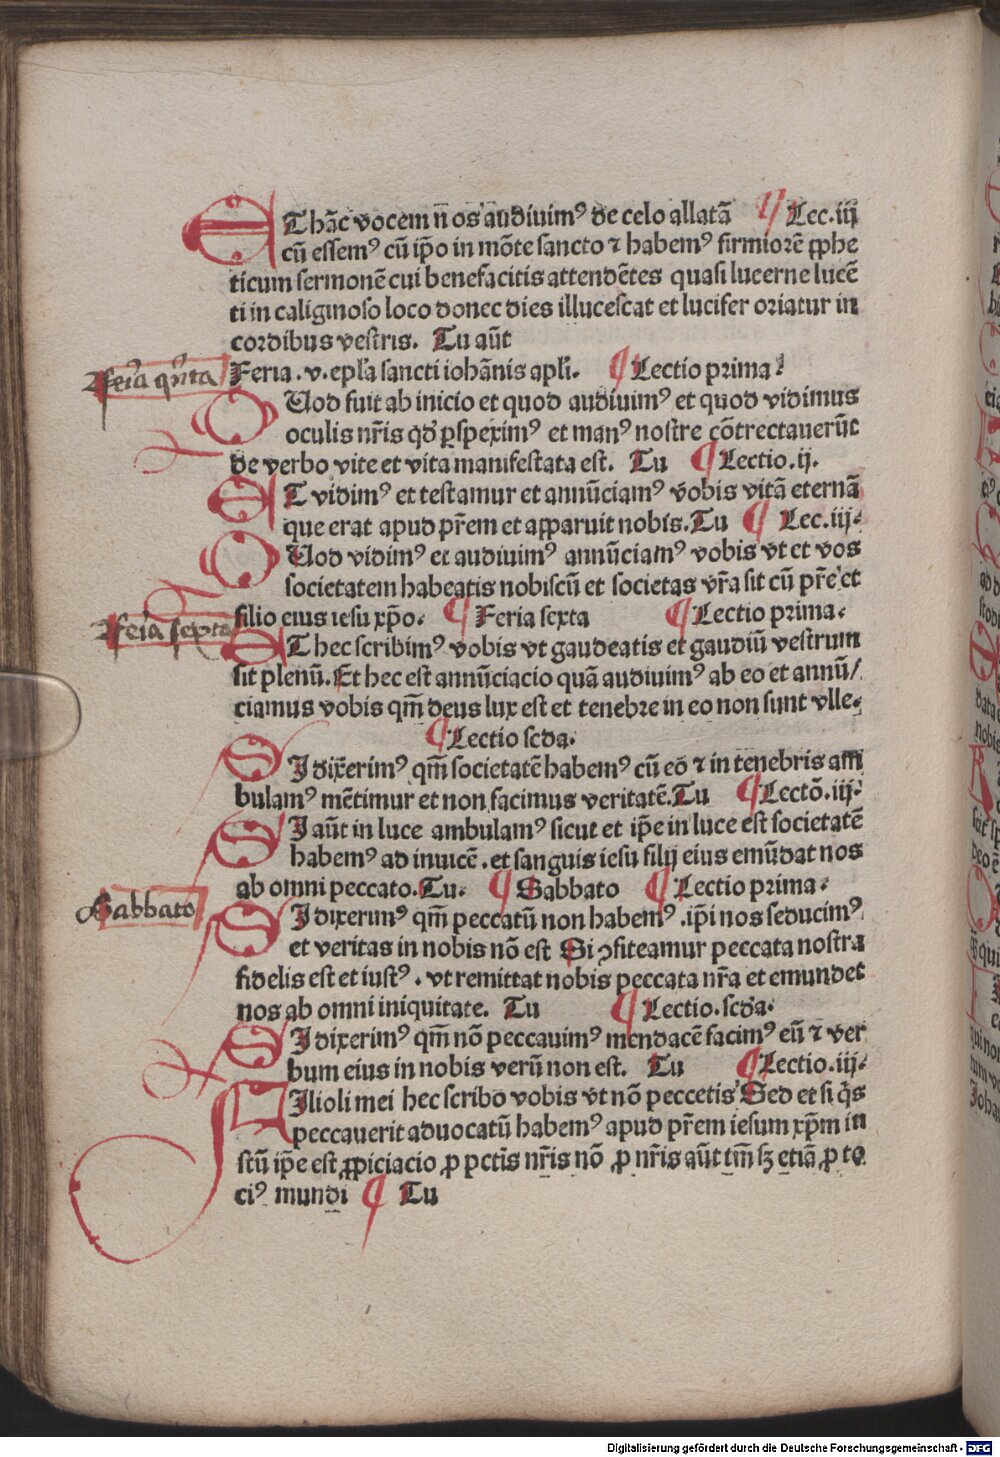 ET hāc vocem nos audiuimꝰ de celo allatā ¶ Lec.iij
cū essemꝰ cū ip̄o in mōte sancto ⁊ habemꝰ firmiorē ꝓphe
ticum sermonē cui benefacitis attendētes quasi lucerne lucē
ti in caliginoso loco donec dies illucescat et lucifer oriatur in
cordibus vestris. Tu aūt
feria qͥnta
Feria .v. epl̄a sancti iohānis apl̄i. ¶ Lectio prima.
QUod fuit ab inicio et quod audiuimꝰ et quod vidimus
oculis nr̄is qd̄ ꝑspeximꝰ et manꝰ nostre cōtrectauerūt
de verbo vite et vita manifestata est. Tu ¶ Lectio.ij.
ET vidimꝰ et testamur et annūciamꝰ vobis vitā eternā
que erat apud pr̄em et apparuit nobis. Tu ¶ Lec.iij.
QUod vidimꝰ et audiuimꝰ annūciamꝰ vobis vt et vos
societatem habeatis nobiscū et societas vr̄a sit cū pr̄e et
feria sexta
filio eius iesu xp̄o. ¶ Feria sexta ¶ Lectio prima.
ET hec scribimꝰ vobis vt gaudeatis et gaudiū vestrum
sit plenū. Et hec est annūciacio quā audiuimꝰ ab eo et annū/
ciamus vobis qm̄ deus lux est et tenebre in eo non sunt vlle.
¶ Lectio scd̄a.
SI dixerimꝰ qm̄ societatē habemꝰ cū eo ⁊ in tenebris am
bulamꝰ mētimur et non facimus veritatē. Tu ¶ Lectō.iij.
SI aūt in luce ambulamꝰ sicut et ip̄e in luce est societatē
habemꝰ ad inuicē .et sanguis iesu filij eius emūdat nos
ab omni peccato. Tu. ¶ Sabbato ¶ Lectio prima.
Sabbato
SI dixerimꝰ qm̄ peccatū non habemꝰ .ip̄i nos seducimꝰ
et veritas in nobis nō est Si ꝯfiteamur peccata nostra
fidelis est et iustꝰ . vt remittat nobis peccata nr̄a et emundet
nos ab omni iniquitate. Tu ¶ Lectio.scd̄a.
SI dixerimꝰ qm̄ nō peccauimꝰ mendacē facimꝰ eū ⁊ ver
bum eius in nobis verū non est. Tu ¶ Lectio.iij.
FIlioli mei hec scribo vobis vt nō peccetis Sed et si qͥs
peccauerit aduocatū habemꝰ apud pr̄em iesum xp̄m iu
stū ip̄e est ꝓpiciacio ꝓ pctīs nr̄is nō ꝓ nr̄is aūt tm̄ sꝫ etiā ꝓ to
ciꝰ mundi ¶ Tu
Digitalisierung gefördert durch die Deutsche Forschungsgemeinschaft - DFG